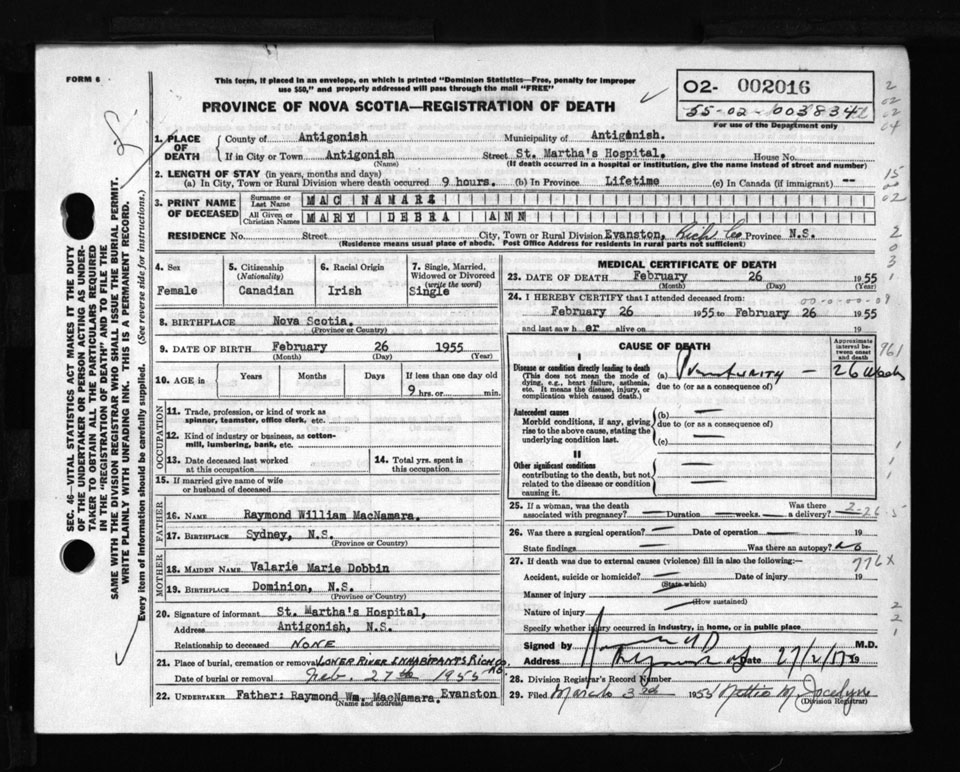 FORM 6
This form, if placed in an envelope, on which is printed "Dominion Statistics—Free, penalty for improper
use $50," and properly addressed will pass through the mail "FREE"
PROVINCE OF NOVA SCOTIA—REGISTRATION OF DEATH
02- 002016
55-02-003834
For use of the Department only
1. PLACE OF DEATH
County of Antigonish Municipality of Antigonish.
If in City or Town Antigonish Street St. Martha's Hospital. House No.
(Name) (If death occurred in a hospital or institution, give the name instead of street and number)
2. LENGTH OF STAY (in years, months and days)
(a) In City, Town or Rural Division where death occurred 9 hours. (b) In Province Lifetime (c) In Canada (if immigrant) --
3. PRINT NAME OF DECEASED
Surname or Last Name MAC NAMARA
All Given or Christian Names MARY DEBRA ANN
RESIDENCE No. Street City, Town or Rural Division Evanston, Rich. Co. Province N.S.
(Residence means usual place of abode. Post Office Address for residents in rural parts not sufficient)
4. Sex
Female
5. Citizenship
(Nationality)
Canadian
6. Racial Origin
Irish
7. Single, Married, Widowed or Divorced
(write the word)
Single
8. BIRTHPLACE Nova Scotia.
(Province or Country)
9. DATE OF BIRTH February 26 1955
(Month) (Day) (Year)
10. AGE in Years Months Days If less than one day old
9 hrs. or min.
OCCUPATION
11. Trade, profession, or kind of work as
spinner, teamster, office clerk, etc.
12. Kind of industry or business, as cotton-
mill, lumbering, bank, etc.
13. Date deceased last worked
at this occupation
14. Total yrs. spent in
this occupation
15. If married give name of wife
or husband of deceased
FATHER
16. NAME Raymond William MacNamara.
17. BIRTHPLACE Sydney, N.S.
(Province or Country)
MOTHER
18. MAIDEN NAME Valarie Marie Dobbin
19. BIRTHPLACE Dominion, N.S.
(Province or Country)
20. Signature of informant St. Martha's Hospital,
Address Antigonish, N.S.
Relationship to deceased NONE
21. Place of burial, cremation or removal LOWER RIVER INHABITANTS RICH CO. NS
Date of burial or removal Feb. 27th 1955
22. UNDERTAKER Father: Raymond Wm. MacNamara. Evanston
(Name and address)
MEDICAL CERTIFICATE OF DEATH
23. DATE OF DEATH February 26 1955
(Month) (Day) (Year)
24. I HEREBY CERTIFY that I attended deceased from 00-0-00-09
February 26 1955 to February 26 1955
and last saw h er alive on 19
CAUSE OF DEATH
Approximate interval between onset and death
I
Disease or condition directly leading to death
(This does not mean the mode of
dying, e.g., heart failure, asthenia,
etc. It means the disease, injury, or
complication which caused death.)
(a) Prematurity — 26 weeks
due to (or as a consequence of)
Antecedent causes
Morbid conditions, if any, giving
rise to the above cause, stating the
underlying condition last.
(b) —
due to (or as a consequence of)
(c) —
II
Other significant conditions
contributing to the death, but not
related to the disease or condition
causing it.
25. If a woman, was the death
associated with pregnancy? — Duration — weeks. — Was there a delivery? 2-26-5
26. Was there a surgical operation? — Date of operation — 19
State findings — Was there an autopsy? no
27. If death was due to external causes (violence) fill in also the following:— 776X
Accident, suicide or homicide? — Date of injury 19
(State which)
Manner of injury —
(How sustained)
Nature of injury —
Specify whether injury occurred in industry, in home, or in public place
Signed by M.D.
Address Date 27/2/55 19
28. Division Registrar's Record Number
29. Filed March 3rd 1955 Nettie M. Jocelyne
(Division Registrar)
SEC. 46—VITAL STATISTICS ACT MAKES IT THE DUTY
OF THE UNDERTAKER OR PERSON ACTING AS UNDER-
TAKER TO OBTAIN ALL THE PARTICULARS REQUIRED
IN THE "REGISTRATION OF DEATH" AND TO FILE THE
SAME WITH THE DIVISION REGISTRAR WHO SHALL ISSUE THE BURIAL PERMIT.
WRITE PLAINLY WITH UNFADING INK. THIS IS A PERMANENT RECORD.
Every item of information should be carefully supplied. (See reverse side for instructions.)